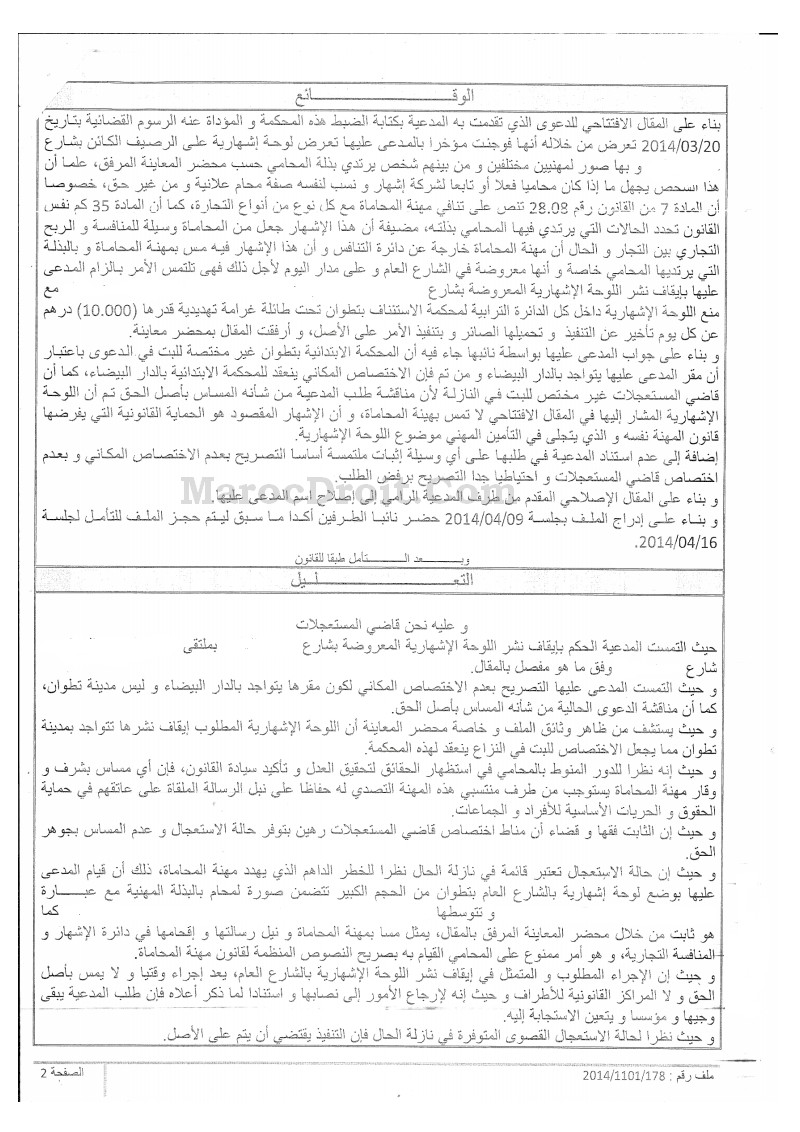 الوقـــــــــــائع
بناء على المقال الافتتاحي للدعوى الذي تقدمت به المدعية بكتابة الضبط هذه المحكمة و المؤداة عنه الرسوم القضائية بتاريخ
2014/03/20 تعرض من خلاله أنها فوجئت مؤخرا بالمدعى عليها تعرض لوحة إشهارية على الرصيف الكائن بشارع
و بها صور لمهنيين مختلفين و من بينهم شخص يرتدي بذلة المحامي حسب محضر المعاينة المرفق، علما أن
هذا الشخص يجهل ما إذا كان محاميا فعلا أو تابعا لشركة إشهار و نسب لنفسه صفة محام علانية و من غير حق، خصوصا
أن المادة 7 من القانون رقم 28.08 تنص على تنافي مهنة المحاماة مع كل نوع من أنواع التجارة، كما أن المادة 35 كم نفس
القانون تحدد الحالات التي يرتدي فيها المحامي بذلته، مضيفة أن هذا الإشهار جعل من المحاماة وسيلة للمنافسة و الربح
التجاري بين التجار و الحال أن مهنة المحاماة خارجة عن دائرة التنافس و أن هذا الإشهار فيه مس بمهنة المحاماة و بالبذلة
التي يرتديها المحامي خاصة و أنها معروضة في الشارع العام و على مدار اليوم لأجل ذلك فهي تلتمس الأمر بإلزام المدعى
عليها بإيقاف نشر اللوحة الإشهارية المعروضة بشارع مع
منع اللوحة الإشهارية داخل كل الدائرة الترابية لمحكمة الاستئناف بتطوان تحت طائلة غرامة تهديدية قدرها (10.000) درهم
عن كل يوم تأخير عن التنفيذ و تحميلها الصائر و بتنفيذ الأمر على الأصل، و أرفقت المقال بمحضر معاينة.
و بناء على جواب المدعى عليها بواسطة نائبها جاء فيه أن المحكمة الابتدائية بتطوان غير مختصة للبت في الدعوى باعتبار
أن مقر المدعى عليها يتواجد بالدار البيضاء و من تم فإن الاختصاص المكاني ينعقد للمحكمة الابتدائية بالدار البيضاء، كما أن
قاضي المستعجلات غير مختص للبت في النازلة لأن مناقشة طلب المدعية من شأنه المساس بأصل الحق تم أن اللوحة
الإشهارية المشار إليها في المقال الافتتاحي لا تمس بهيئة المحاماة، و أن الإشهار المقصود هو الحماية القانونية التي يفرضها
قانون المهنة نفسه و الذي يتجلى في التأمين المهني موضوع اللوحة الإشهارية.
إضافة إلى عدم استناد المدعية في طلبها على أي وسيلة إثبات ملتمسة أساسا التصريح بعدم الاختصاص المكاني و بعدم
اختصاص قاضي المستعجلات و احتياطيا جدا التصريح برفض الطلب.
MarocDroit.Com
و بناء على المقال الإصلاحي المقدم من طرف المدعية الرامي إلى إصلاح اسم المدعى عليها.
و بناء على إدراج الملف بجلسة 2014/04/09 حضر نائبا الطرفين أكدا ما سبق ليتم حجز الملف للتأمل لجلسة
2014/04/16.
وبـــــــعد الـــــــــتأمل طبقا للقانون
التعـــــــــــــليل
و عليه نحن قاضي المستعجلات
حيث التمست المدعية الحكم بإيقاف نشر اللوحة الإشهارية المعروضة بشارع بملتقى
شارع وفق ما هو مفصل بالمقال.
و حيث التمست المدعى عليها التصريح بعدم الاختصاص المكاني لكون مقرها يتواجد بالدار البيضاء و ليس مدينة تطوان،
كما أن مناقشة الدعوى الحالية من شأنه المساس بأصل الحق.
و حيث يستشف من ظاهر وثائق الملف و خاصة محضر المعاينة أن اللوحة الإشهارية المطلوب إيقاف نشرها تتواجد بمدينة
تطوان مما يجعل الاختصاص للبت في النزاع ينعقد لهذه المحكمة.
و حيث إنه نظرا للدور المنوط بالمحامي في استظهار الحقائق لتحقيق العدل و تأكيد سيادة القانون، فإن أي مساس بشرف و
وقار مهنة المحاماة يستوجب من طرف منتسبي هذه المهنة التصدي له حفاظا على نبل الرسالة الملقاة على عاتقهم في حماية
الحقوق و الحريات الأساسية للأفراد و الجماعات.
و حيث إن الثابت فقها و قضاء أن مناط اختصاص قاضي المستعجلات رهين بتوفر حالة الاستعجال و عدم المساس بجوهر
الحق.
و حيث إن حالة الاستعجال تعتبر قائمة في نازلة الحال نظرا للخطر الداهم الذي يهدد مهنة المحاماة، ذلك أن قيام المدعى
عليها بوضع لوحة إشهارية بالشارع العام بتطوان من الحجم الكبير تتضمن صورة لمحام بالبذلة المهنية مع عبـــــارة
و تتوسطها كما
هو ثابت من خلال محضر المعاينة المرفق بالمقال، يمثل مسا بمهنة المحاماة و نبل رسالتها و إقحامها في دائرة الإشهار و
المنافسة التجارية، و هو أمر ممنوع على المحامي القيام به بصريح النصوص المنظمة لقانون مهنة المحاماة.
و حيث إن الإجراء المطلوب و المتمثل في إيقاف نشر اللوحة الإشهارية بالشارع العام، يعد إجراء وقتيا و لا يمس بأصل
الحق و لا المراكز القانونية للأطراف و حيث إنه لإرجاع الأمور إلى نصابها و استنادا لما ذكر أعلاه فإن طلب المدعية يبقى
وجيها و مؤسسا و يتعين الاستجابة إليه.
و حيث نظرا لحالة الاستعجال القصوى المتوفرة في نازلة الحال فإن التنفيذ يقتضي أن يتم على الأصل.
ملف رقم : 2014/1101/178 الصفحة 2